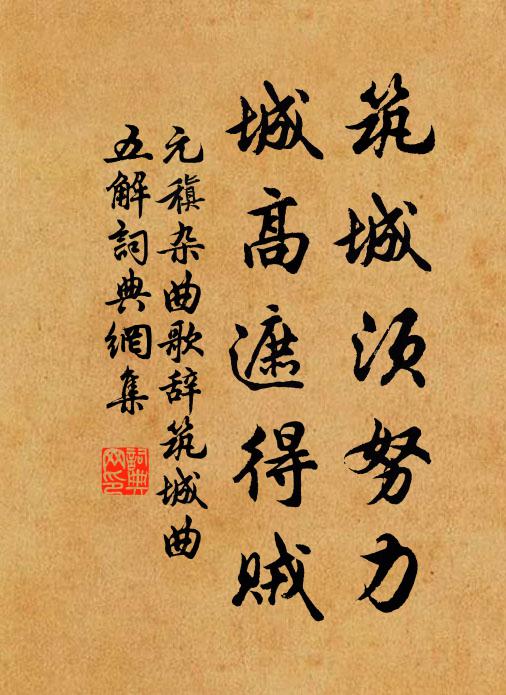 筑城须努力
城高遮得贼
元稹杂曲歌辞筑城曲
五解詞典網集
詞典网印